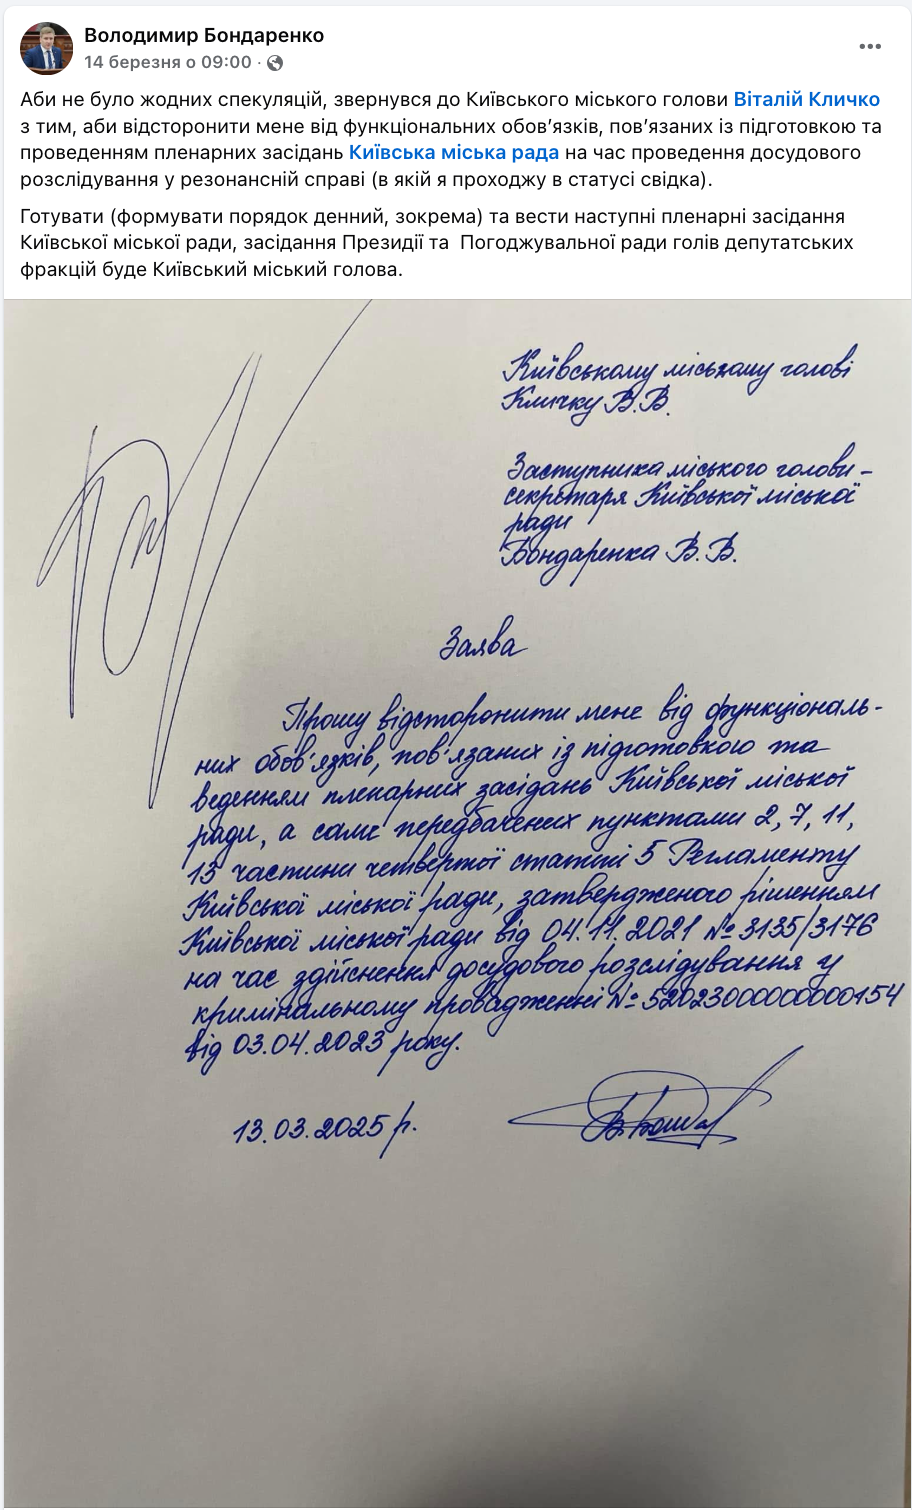 Володимир Бондаренко
14 березня о 09:00 ·
Аби не було жодних спекуляцій, звернувся до Київського міського голови Віталій Кличко
з тим, аби відсторонити мене від функціональних обов’язків, пов’язаних із підготовкою та
проведенням пленарних засідань Київська міська рада на час проведення досудового
розслідування у резонансній справі (в якій я проходжу в статусі свідка).
Готувати (формувати порядок денний, зокрема) та вести наступні пленарні засідання
Київської міської ради, засідання Президії та Погоджувальної ради голів депутатських
фракцій буде Київський міський голова.
Київському міському голові
Кличку В.В.
Заступника міського голови –
секретаря Київської міської
ради
Бондаренка В.В.
Заява
Прошу відсторонити мене від функціональ-
них обов'язків, пов'язаних із підготовкою та
веденням пленарних засідань Київської міської
ради, а саме передбачених пунктами 2, 7, 11,
13 частини четвертої статті 5 Регламенту
Київської міської ради, затвердженого рішенням
Київської міської ради від 04.11.2021 № 3135/3176
на час здійснення досудового розслідування у
кримінальному провадженні № 52023000000000154
від 03.04.2023 року.
13.03.2025 р.